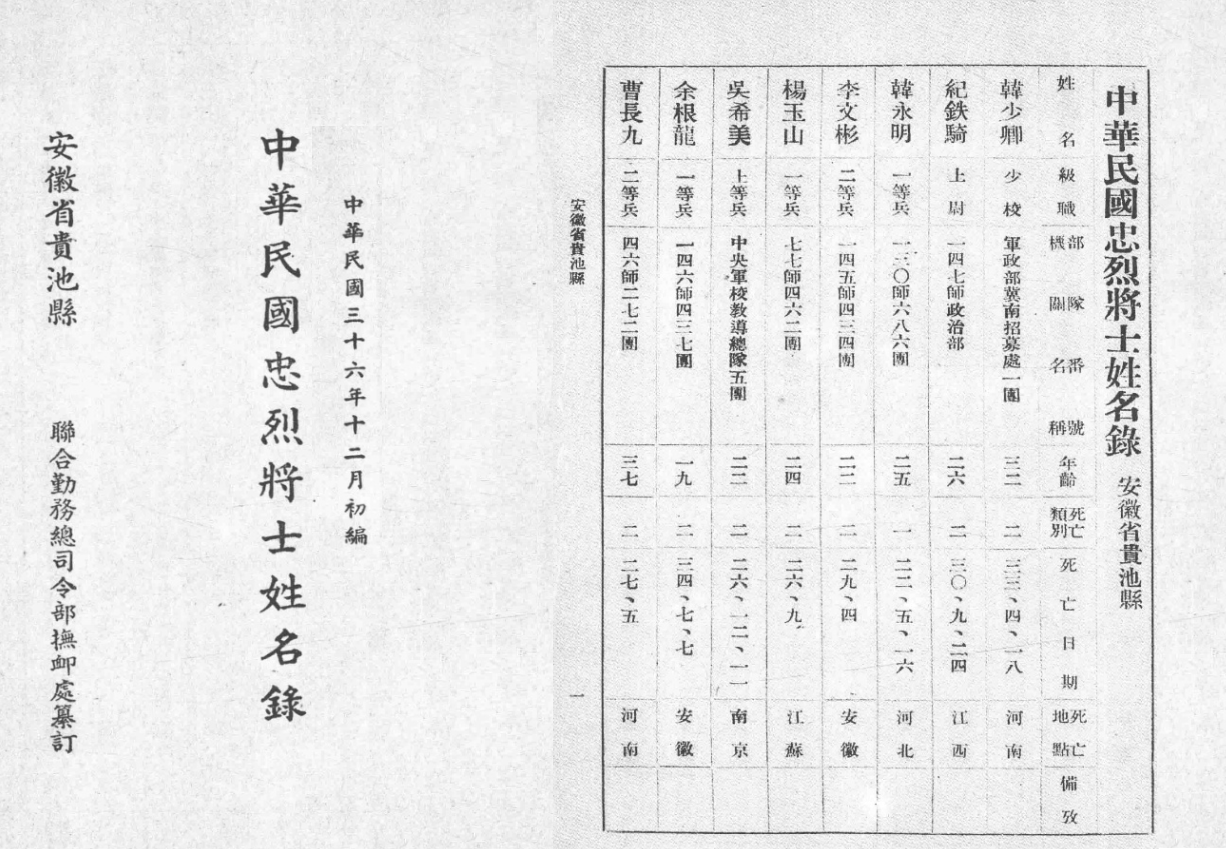 中華民國忠烈將士姓名錄 安徽省貴池縣
姓名 級職 部隊番號機關名稱 年齡 死亡類別 死亡日期 死亡地點 備攷
韓少卿 少校 軍政部冀南招募處一團 三二 二 三三、四、一八 河南
紀鉄騎 上尉 一四七師政治部 二六 二 三〇、九、二四 江西
韓永明 一等兵 一三〇師六八六團 二五 一 二二、五、一六 河北
李文彬 二等兵 一四五師四三四團 二二 二 二九、四 安徽
楊玉山 一等兵 七七師四六二團 二四 二 二六、九 江蘇
吳希美 上等兵 中央軍校教導總隊五團 二二 二 二六、一二、一一 南京
余根龍 一等兵 一四六師四三七團 一九 二 三四、七、七 安徽
曹長九 二等兵 四六師二七二團 三七 二 二七、五 河南
安徽省貴池縣 一
中華民國三十六年十二月初編
中華民國忠烈將士姓名錄
安徽省貴池縣 聯合勤務總司令部撫卹處纂訂